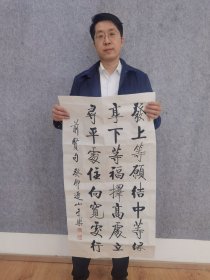 發上等願結中等缘
享下等福擇高處立
尋平處住向寬處行
前賢句 癸卯